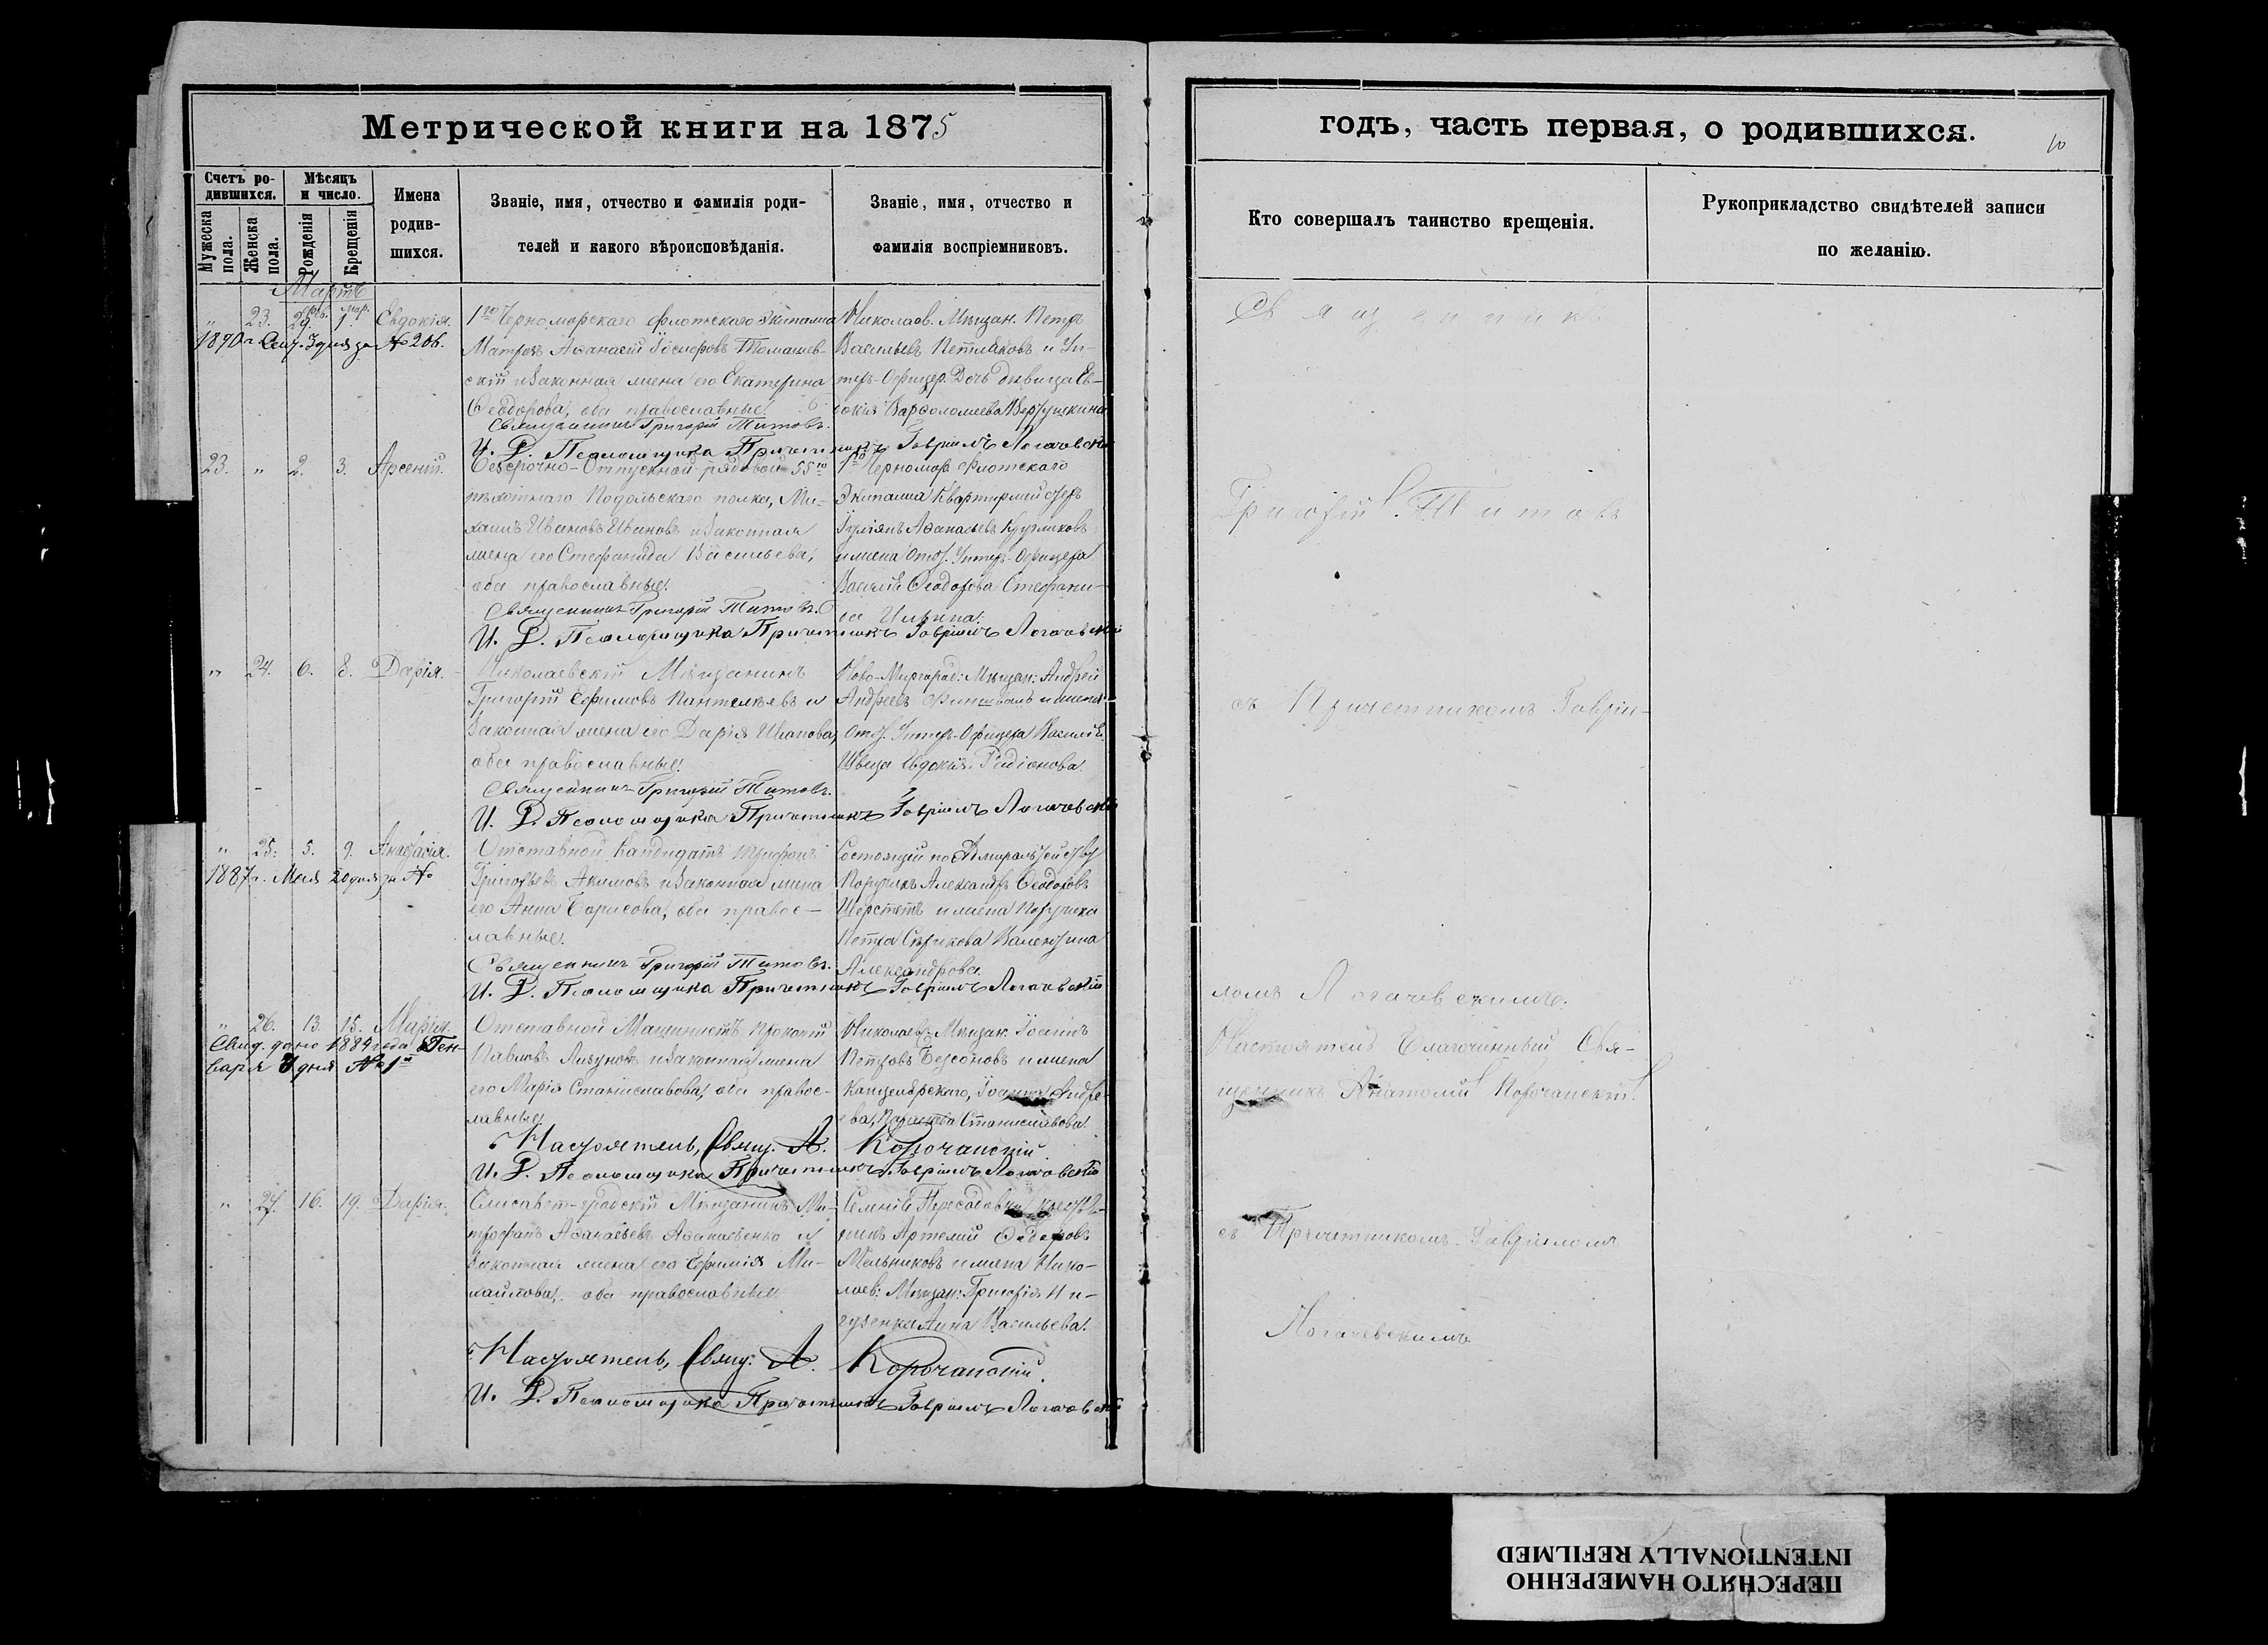 Метрической книги на 1875
Счетъ родившихся.
Мѣсяцъ и число.
Имена родившихся.
Званіе, имя, отчество и фамилія родителей и какого вѣроисповѣданія.
Званіе, имя, отчество и фамилія воспріемниковъ.
Мужеска пола.
Женска пола.
Рожденія
Крещенія
Мартъ
" 23. фев. 29. мар. 1. Евдокія.
1890 г. 3 дня за № 206.
1го Черноморскаго флотскаго Экипажа
Матрозъ Аѳанасій Томашев-
скій и Законная жена его Екатерина
Ѳеодорова, оба православные.
Священникъ Григорій Титовъ.
И. Д. Псаломщика Причетникъ Гавріилъ Логачевскій
Николаев. Мѣщан. Петръ
Васильевъ и Ун-
теръ-Офицер. Дочь дѣвица Ев-
докія Варѳоломеева
23. " 2. 3. Арсеній.
Безсрочно-Отпускной рядовой 55го
пѣхотнаго Подольскаго полка, Ми-
хаилъ Ивановъ Ивановъ и Законная
жена его Стефанида Васильева,
оба православные.
Священникъ Григорій Титовъ.
И. Д. Псаломщика Причетникъ Гавріилъ Логачевскій
1го Черномор. Флотскаго
Экипажа Квартирмейстеръ
Іуліанъ Аѳанасьевъ
и жена Отст. Унтеръ-Офицера
Василія Ѳеодорова Стефани-
да Ильина.
" 24. 6. 8. Дарія.
Николаевскій Мѣщанинъ
Григорій Ефимовъ Пантелѣевъ и
Законная жена его Дарія Иванова,
оба православные.
Священникъ Григорій Титовъ.
И. Д. Псаломщика Причетникъ Гавріилъ Логачевскій
Ново-Миргород: Мѣщан: Андрей
Андреевъ и жена
Отст. Унтеръ-Офицера Василія
Швеца Евдокія Родіонова.
" 25. 5. 9. Анастасія.
1887 г. Мая 20 дня за №
Отставной Кандидатъ Трифонъ
Григорьевъ Акимовъ и Законная жена
его Анна Борисова, оба правос-
лавные.
Священникъ Григорій Титовъ.
И. Д. Псаломщика Причетникъ Гавріилъ Логачевскій
Состоящій по Адмиралтейству
Поручикъ Александръ Ѳеодоровъ
Шерстетъ и жена Поручика
Петра Сѣрикова Валентина
Александрова.
" 26. 13. 15. Марія.
Свид. дано 1884 года Ген-
варя дня № 1й
Отставной Машинистъ Прокопій
Павловъ Лизуновъ и Законная жена
его Марія Станиславова, оба правос-
лавные.
Настоятель, Свящ. А. Корочанскій.
И. Д. Псаломщика Причетникъ Гавріилъ Логачевскій
Николаев. Мѣщан. Іоаннъ
Петровъ Безсоновъ и жена
Канцелярскаго, Андре-
ева, Станиславова.
" 27. 16. 19. Дарія.
Елисавет-градскій Мѣщанинъ Ми-
трофанъ Аѳанасьевъ Аѳанасьенко и
Законная жена его Ефимія Ми-
хайлова, оба православные.
Настоятель, Свящ. А. Корочанскій.
И. Д. Псаломщика Причетникъ Гавріилъ Логачевскій
Селенія Пересадовки Крестья-
нинъ Артемій Ѳедоровъ
Мельниковъ и жена Нико-
лаев: Мѣщан: Григорія
Анна Васильева.
годъ, часть первая, о родившихся.
10
Кто совершалъ таинство крещенія.
Рукоприкладство свидѣтелей записи по желанію.
Священникъ
Григорій Титовъ
съ Причетникомъ Гавріи-
ломъ Логачевскимъ.
Настоятель Благочинный Свя-
щенникъ Анатолій Корочанскій
съ Причетникомъ Гавріиломъ
Логачевскимъ
ПЕРЕСНЯТО НАМЕРЕННО
INTENTIONALLY REFILMED